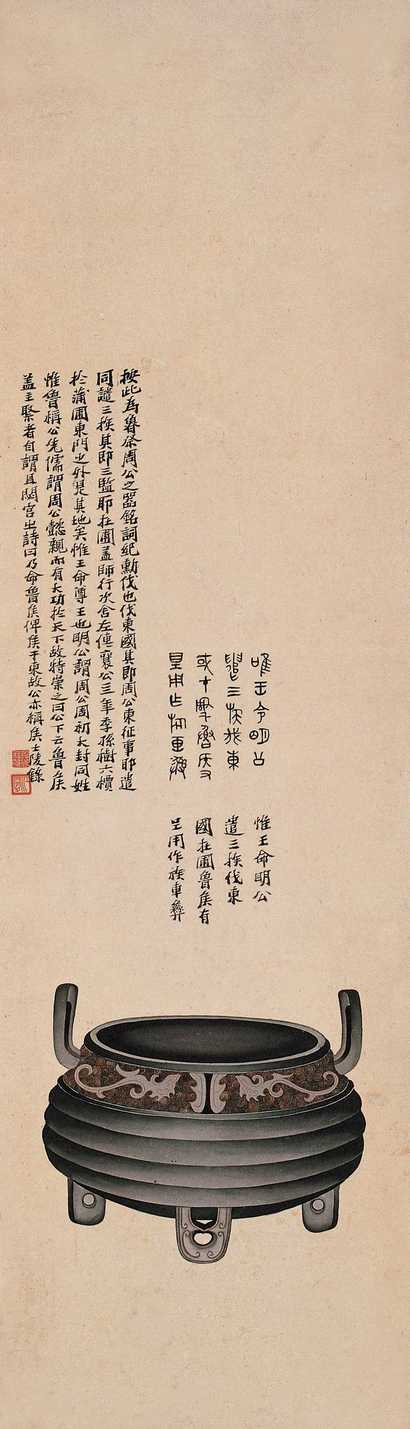 唯王令明公
遣三族伐東
或才魯侯又
用乍旅車彝
惟王命明公
遣三族伐東
國在圃魯侯有
用作旅車彝
按此為魯祭周公之器銘詞紀勳伐也伐東國其即周公東征事耶遣
同譴三族其即三監耶在圃蓋師行次舍左傳襄公三年季孫樹六檟
於蒲圃東門之外是其地矣惟王命尊王也明公謂周公周初大封同姓
惟魯稱公先儒謂周公懿親而有大功於天下故特崇之曰公下云魯侯
蓋主祭者自謂且閟宮之詩曰乃命魯侯俾侯于東故公亦稱侯士陵錄